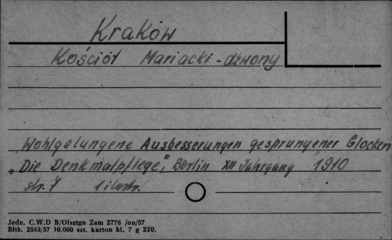 Kraków
Kościół Mariacki - dzwony
Wohlgelungene Ausbesserungen gesprungener Glocken
„Die Denkmalpflege", Berlin XII Jahrgang 1910
str. 7 1 ilustr.
Jedn. C.W.D B/Olsztyn Zam 2776 /on/57
Bltk. 2563/57 10.000 szt. karton kl. 7 g 220.